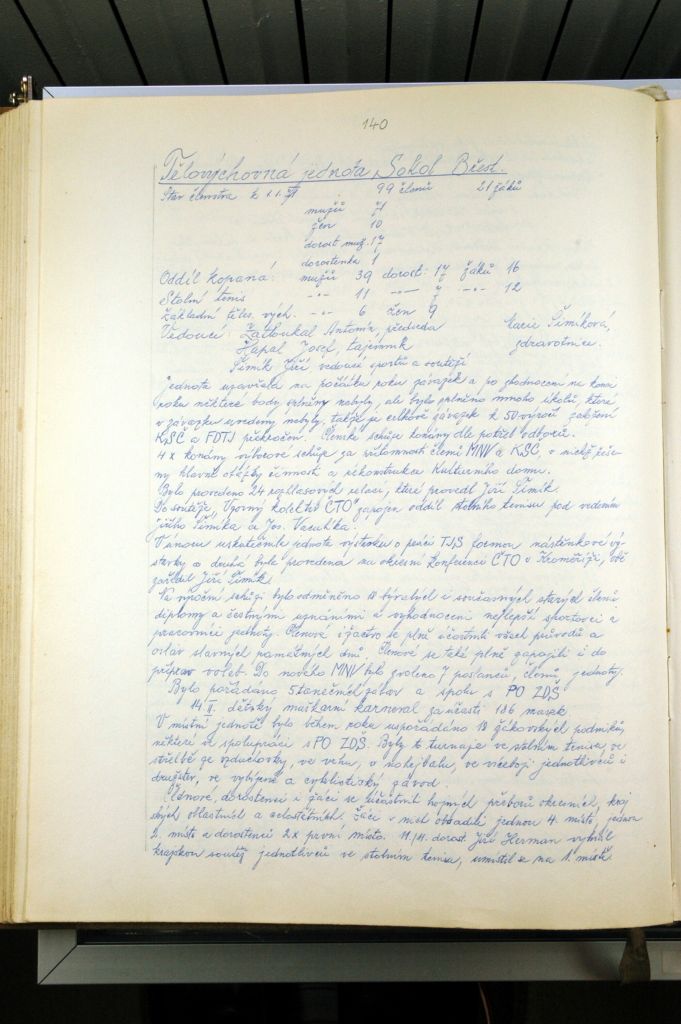 140
Tělovýchovná jednota Sokol Břest.
Stav členstva k 1.1. 99 členů 21 žáků
mužů 71
žen 10
dorost muž. 17
dorostenka 1
Oddíl kopaná: mužů 39 dorost: 17 žáků 16
Stolní tenis -"- 11 -"- 7 -"- 12
Základní těles. vých. -"- 6 žen 9
Vedoucí: Zatloukal Antonín, předseda Marie Šimíková,
Hapal Josef, tajemník zdravotnice.
Šimík Jiří vedoucí sportů a soutěží
Jednota uzavírala na počátku roku závazek a po zhodnocení na konci
roku některé body splněny nebyly, ale bylo splněno mnoho úkolů, které
v závazku uvedeny nebyly, takže je celkově závazek k 50 výročí založení
KSČ a FDTJ překročen. Členské schůze konány dle potřeb odborů.
4 x konány výborové schůze za přítomnosti členů MNV a KSČ, v nichž řeše-
ny hlavně otázky činnosti a rekonstrukce Kulturního domu.
Bylo provedeno 24 rozhlasových relací, které provedl Jiří Šimík.
Do soutěže "Vzorný kolektiv ČTO" zapojen oddíl stolního tenisu pod vedením
Jiřího Šimíka a Jos. Vaculíka.
V únoru uskutečnila jednota výstavku o práci TJS formou nástěnkové vý-
stavky a druhá byla provedena na okresní konferenci ČTO v Kroměříži, obě
zařídil Jiří Šimík.
Na výroční schůzi bylo odměněno 18 bývalých i současných starých členů
diplomy a čestnými uznáními a vyhodnoceni nejlepší sportovci a
pracovníci jednoty. Členové i žactvo se plně účastnili všech průvodů a
oslav slavných památných dnů. Členové se také plně zapojili i do
příprav voleb. Do nového MNV bylo zvoleno 7 poslanců, členů jednoty.
Bylo pořádáno 5 tanečních zábav a spolu s PO ZDŠ
14.II. dětský maškarní karneval za účasti 186 masek.
V místní jednotě bylo během roku uspořádáno 18 žákovských podniků,
některé ve spolupráci s PO ZDŠ. Byly to turnaje ve stolním tenise, ve
střelbě ze vzduchovky, ve vrhu, v nohejbalu, ve víceboji jednotlivců i
družstev, ve vybíjené a cyklistický závod.
Členové, dorostenci i žáci se zúčastnili hojných přeborů okresních, kraj
ských oblastních a celostátních. Žáci v nich obsadili jednou 4. místo, jednou
2. místo a dorostenci 2x první místo. dorost. Jiří Herman vyhrál
krajskou soutěž jednotlivců ve stolním tenisu, umístil se na 1. místě.